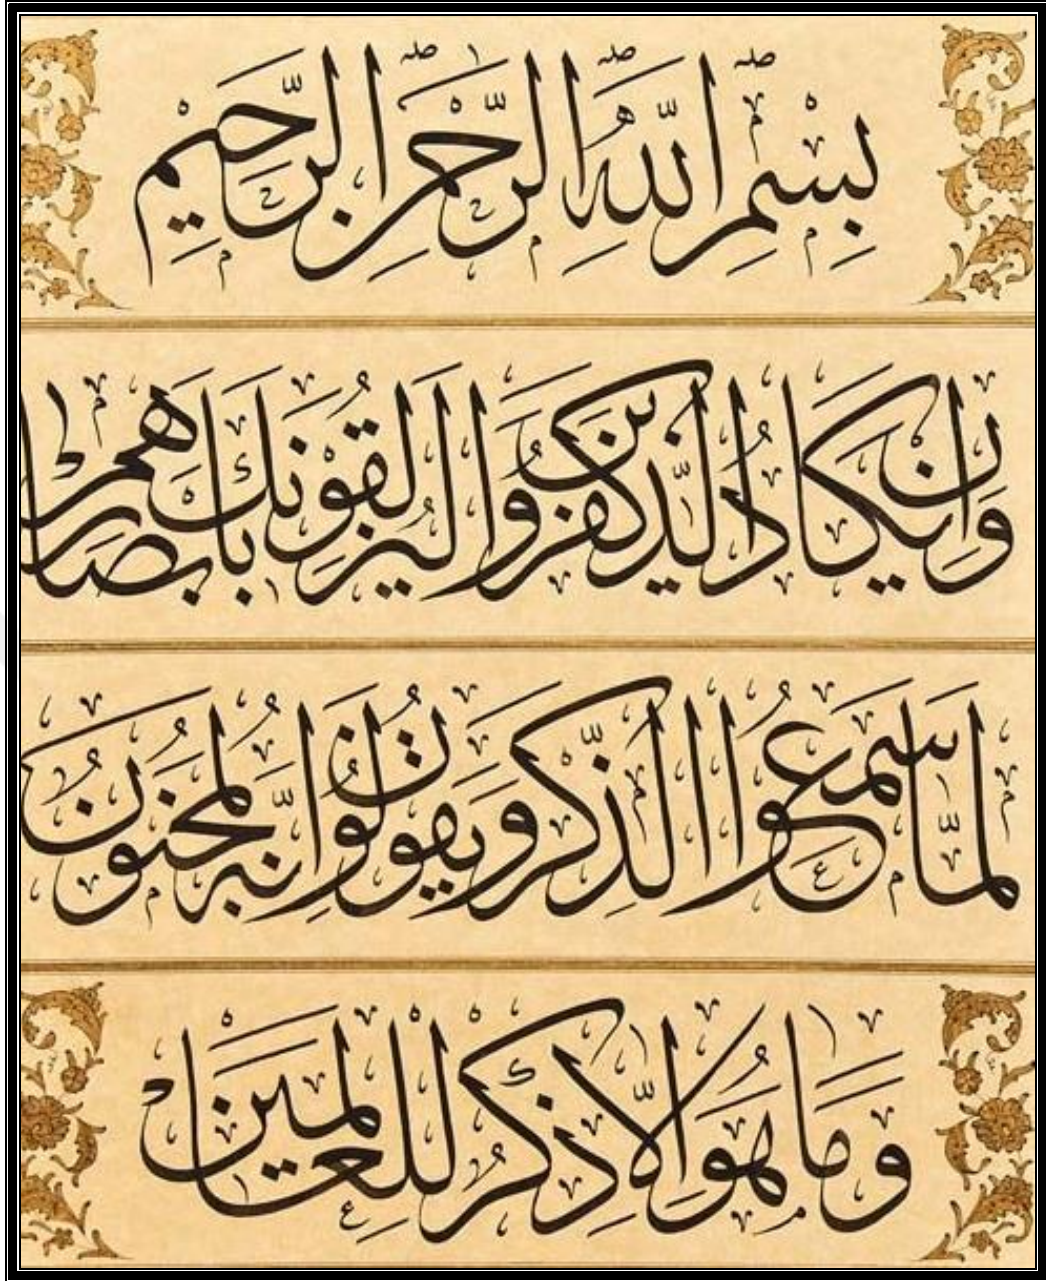 بِسْمِ اللّٰهِ الرَّحْمٰنِ الرَّحِيمِ
وَاِنْ يَكَادُ الَّذِينَ كَفَرُوا لَيُزْلِقُونَكَ بِاَبْصَارِهِمْ
لَمَّا سَمِعُوا الذِّكْرَ وَيَقُولُونَ اِنَّهُ لَمَجْنُونٌ
وَمَا هُوَ اِلَّا ذِكْرٌ لِلْعَالَمِينَ